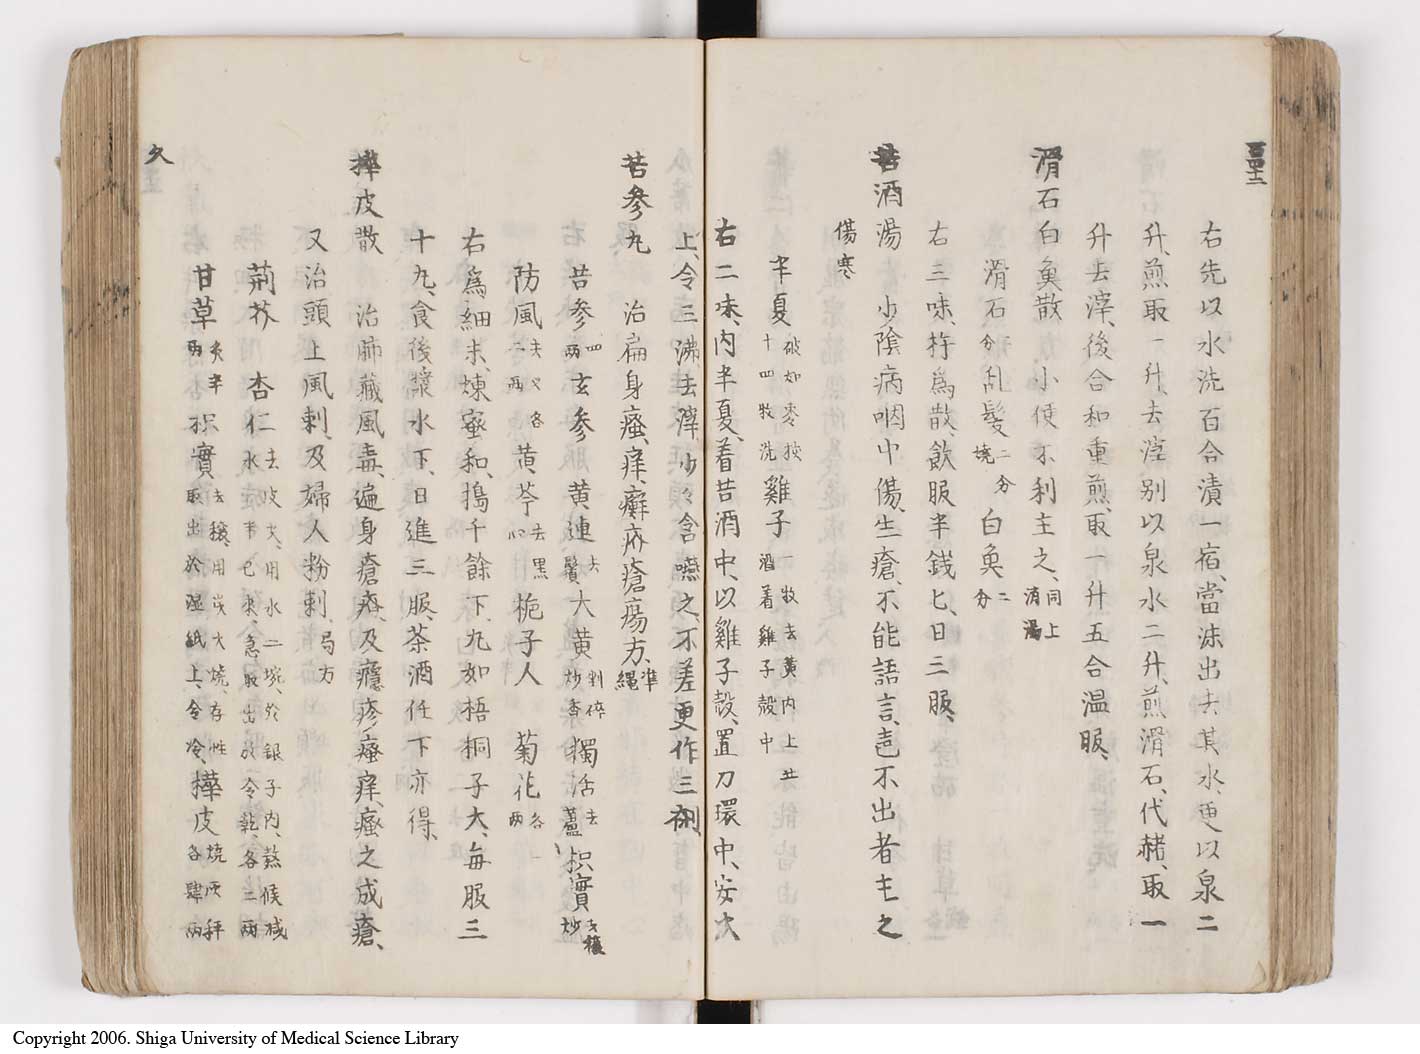 右先以水洗百合漬一宿、當沫出去其水、更以泉二
升、煎取一升、去滓、別以泉水二升、煎滑石、代赭、取一
升去滓、後合和重煎、取一升五合温服、
滑石白魚散　小便不利主之、同上消渇
滑石二分　乱髪二分燒　白魚二分
右三味、杵為散、飲服半錢匕、日三服、
苦酒湯　少陰病咽中傷、生瘡、不能語言、声不出者主之
傷寒
半夏破如棗核十四枚洗　雞子一枚去黄内上苦酒着雞子殻中
右二味、内半夏、着苦酒中、以雞子殻、置刀環中、安火
上、令三沸去滓、少々含嚥之、不差更作三剤、
苦参丸　治扁身瘙痒、癬疥瘡瘍方、準繩
苦参四両　玄参　黄連去鬚　大黄剉碎炒香　獨活去蘆　枳實去穰炒
防風去叉各二両　黄芩去黒心　梔子人　菊花各一両
右為細末、煉蜜和、搗千餘下、丸如梧桐子大、毎服三
十丸、食後漿水下、日進三服、茶酒任下亦得、
樺皮散　治肺藏風毒、遍身瘡疥、及癮疹瘙痒、瘙之成瘡、
又治頭上風刺、及婦人粉刺、局方
荊芥　杏仁去皮尖、用水二埦、於銀子内、熬候減水一半已来、急取出放令乾、各二両
甘草炙半両　枳實去穰、用炭火燒、存性取出於湿紙上、令冷、樺皮燒灰、各肆両
久